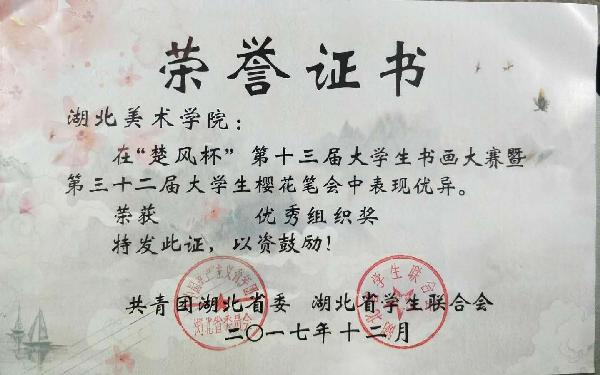 荣誉证书
湖北美术学院：
在“楚风杯”第十三届大学生书画大赛暨
第三十二届大学生樱花笔会中表现优异。
荣获 优秀组织奖
特发此证，以资鼓励！
共青团湖北省委 湖北省学生联合会
二〇一七年十二月
湖北省委员会